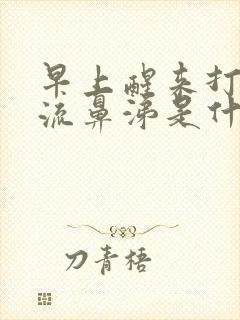 早上醒来打
流鼻涕是什
刀青梧